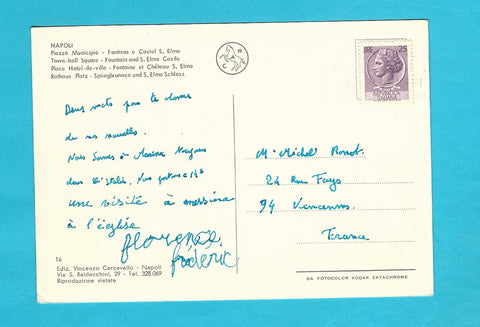 NAPOLI
Piazza Municipio - Fontana e Castel S. Elmo
Town-hall Square - Fountain and S. Elmo Castle
Place Hotel-de-ville - Fontaine et Château S. Elmo
Rathaus Platz - Springbrunnen und S. Elmo Schloss
C A R
LIRE 25
REPUBBLICA
ITALIANA
Deux mots pour te donner
de nos nouvelles.
Nous Sommes à Messine toujours
dans l'Italie. Nous
une visite à messina
à l'église
florence
frédéric
M. Michel
24 Rue Fays
94 Vincennes.
France
16
Ediz. Vincenzo Carcavallo - Napoli
Via S. Baldacchini, 29 - Tel. 328.069
Riproduzione vietata
DA FOTOCOLOR KODAK EKTACHROME